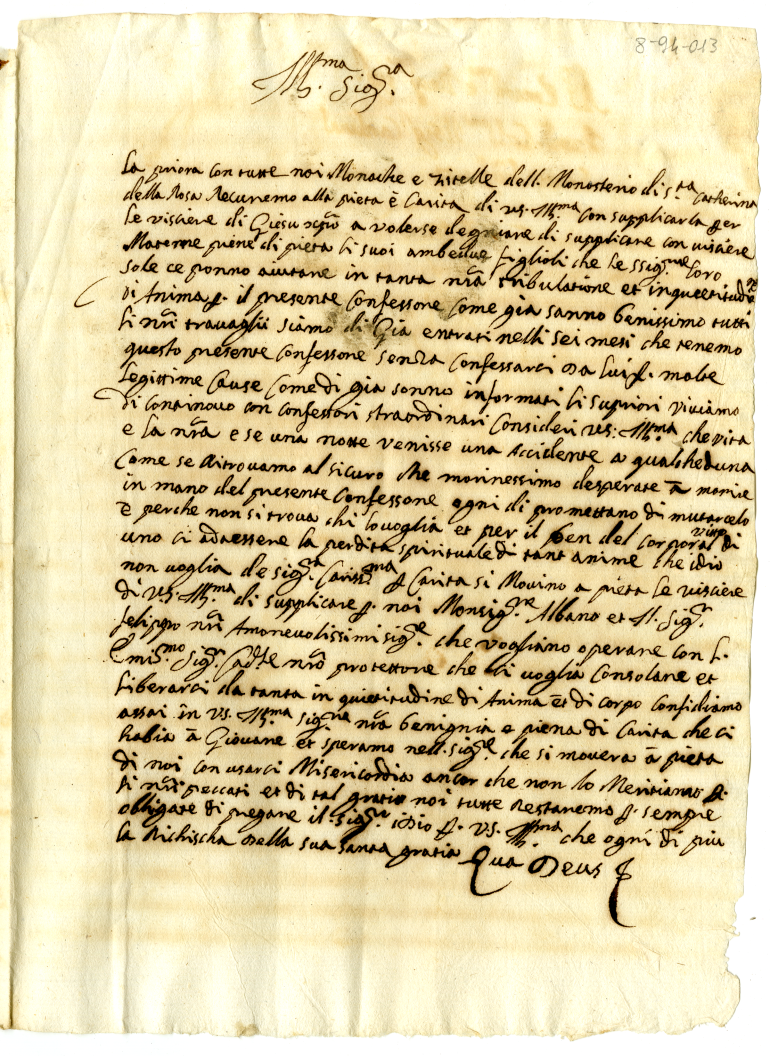 8-94-013
Ill.ma Sig.ra
La priora con tutte noi Monache e Zitelle dell. Monasterio di S.ta Catherina
della Rosa Recuremo alla pieta è Carita di V.S. Ill.ma con supplicarla per
le visciere di Giesu xpo a volerse degniare di supplicare con visciere
Materne piene di pieta li suoi ambedue figlioli che le SSig.rie loro
sole ce ponno aiutare in tanta nra tribulatione et inquietitudine
di Anima p. il presente Confessore Come gia sanno benissimo tutti
li nri travaglii siamo di Gia entrati nelli sei mesi che tenemo
questo presente Confessore senza Confessarci da lui p. molte
legittime Cause Come di gia sonno informati li supriori viviamo
di continovo con confessori straordinari Consideri V.S. Ill.ma che vita
e la nra e se una notte venisse una Accidente a qualcheduna
Come se Ritrovamo al sicuro che morinessimo desperate à morire
in mano del presente Confessore ogni di promettano di mutarcelo
è perche non si trova chi lo voglia et per il ben del corporal vitto di
uno ci ad essere la perdita spirituale di tant anime che idio
non voglia de Sig.ra Cariss.ma p Carita si Movino a pieta le visciere
di V.S. Ill.ma di supplicare p. noi Monsig.re Albano et Il Sig.r
felippo nri Amorevolissimi sig.re che vogliano operare con l.
Emin.mo Sig.r Cadle nro protettore che ci voglia Consolare et
liberarci da tanta in quietitudine di Anima et di corpo Confidiamo
assai in V.S. Ill.ma sig.re nra benignia e piena di Carita che ci
habia à Giovare et speramo nell. sig.re che si movera à pieta
di noi con usarci Misericordia ancor che non lo Meritiamo p.
li nri peccati et di tal gratia noi tutte Restaremo p. sempre
obligate di pregare il sig.re idio p. V.S. Ill.ma che ogni di piu
la Richischa della sua santa gratia Qua Deus